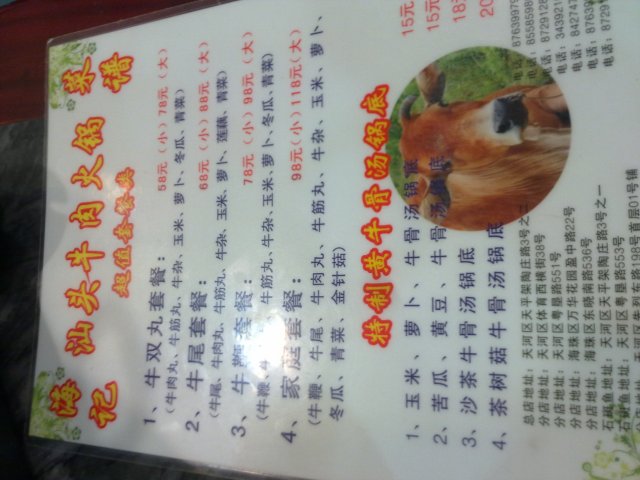 海记 汕头牛肉火锅 菜谱
超值套餐类
1、牛双丸套餐： 58元(小) 78元(大)
(牛肉丸、牛筋丸、牛杂、玉米、萝卜、冬瓜、青菜)
2、牛尾套餐： 68元(小) 88元(大)
(牛尾、牛肉丸、牛筋丸、牛杂、玉米、萝卜、莲藕、青菜)
3、牛鞭套餐： 78元(小) 98元(大)
(牛鞭、牛筋丸、牛杂、玉米、萝卜、冬瓜、青菜)
4、家庭套餐： 98元(小) 118元(大)
(牛鞭、牛尾、牛肉丸、牛筋丸、牛杂、玉米、萝卜、
冬瓜、青菜、金针菇)
特制黄牛骨汤锅底
1、玉米、萝卜、牛骨汤锅底 15元
2、苦瓜、黄豆、牛骨汤锅底 15元
3、沙茶牛骨汤锅底 18元
4、茶树菇牛骨汤锅底
总店地址：天河区天平架陶庄路3号之一 电话：
分店地址：天河区体育西横街38号 电话：
分店地址：天河区粤垦路551号 电话：
分店地址：海珠区万华花园盈中路22号 电话：
分店地址：海珠区东晓南路538号 电话：
石 鱼地址：天河区粤垦路553号 电话：
地址：天河区天平架陶庄路3号之一 电话：
路198号首层01号铺